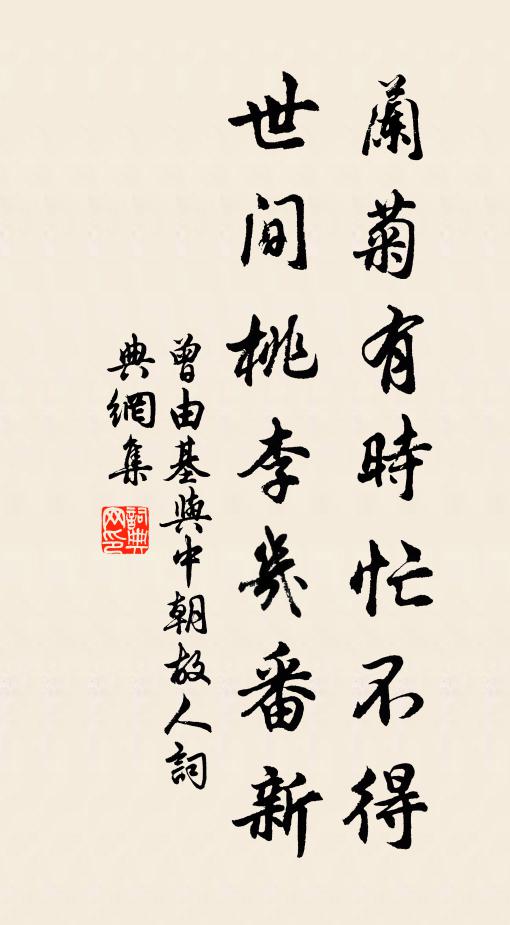 蘭菊有時忙不得
世间桃李幾番新
曾由基與中朝故人詞
典網集
詞典
网印